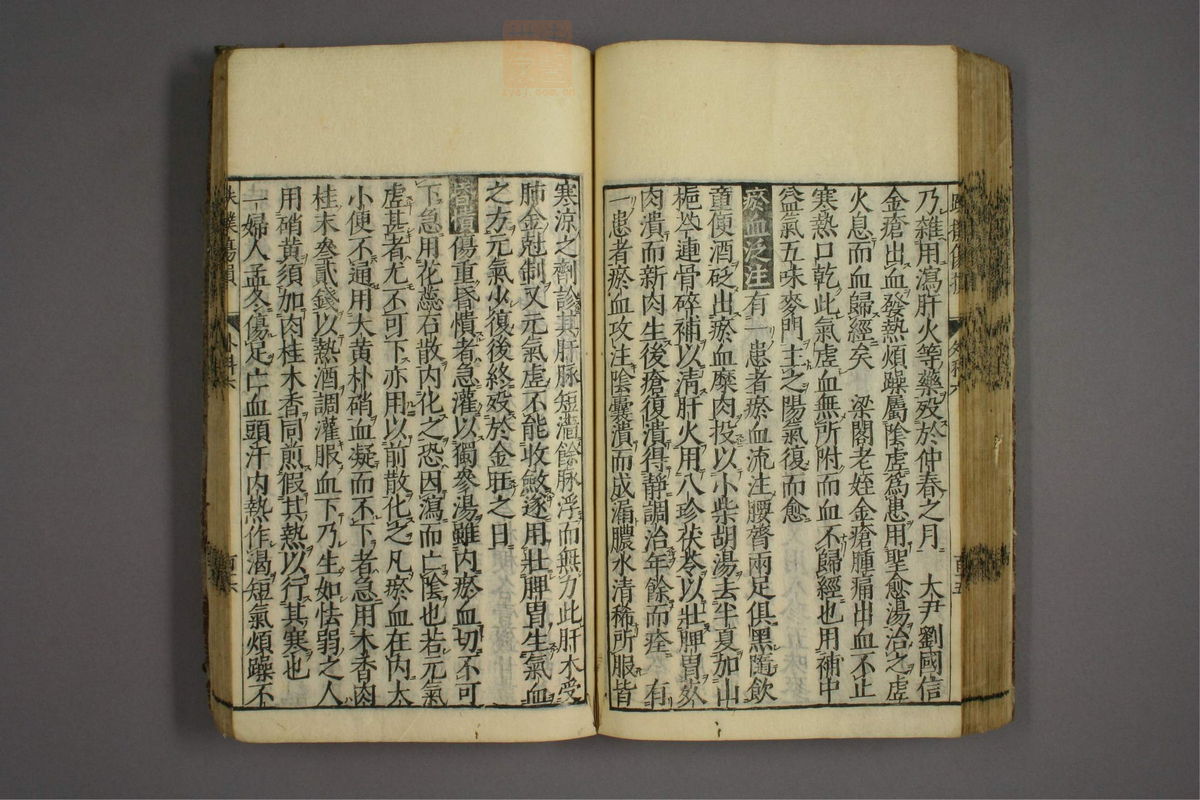 乃雜用瀉肝火等藥歿於仲春之月　大尹劉國信
金瘡出血發熱煩躁屬陰虛爲患用聖愈湯治之虛
火息而血歸經矣　梁閣老姪金瘡腫痛出血不止
寒熱口乾此氣虛血無所附而血不歸經也用補中
益氣五味麥門主之陽氣復而愈
瘀血泛注有一患者瘀血流注腰膂兩足俱黑隨飲
童便酒砭出瘀血糜肉投以小柴胡湯去半夏加山
梔芩連骨碎補以清肝火用八珍茯苓以壯脾胃
肉潰而新肉生後瘡復潰得靜調治年餘而痊　有
一患者瘀血攻注陰囊潰而成漏膿水清稀所服皆
百五
寒涼之劑診其肝脉短濇餘脉浮而無力此肝木受
肺金尅制又元氣虛不能收斂遂用壯脾胃生氣血
之方元氣少復後終歿於金旺之日
昏憒傷重昏憒者急灌以獨參湯雖内瘀血切不可
下急用花蕊石散内化之恐因瀉而亡陰也若元氣
虛甚者尤不可下亦用以前散化之凡瘀血在内大
小便不通用大黃朴硝血凝而不下者急用木香肉
桂末叁貳錢以熱酒調灌服血下乃生如怯弱之人
用硝黃須加肉桂木香同煎假其熱以行其寒也
一婦人孟冬傷足亡血頭汗内熱作渴短氣煩躁不
百六